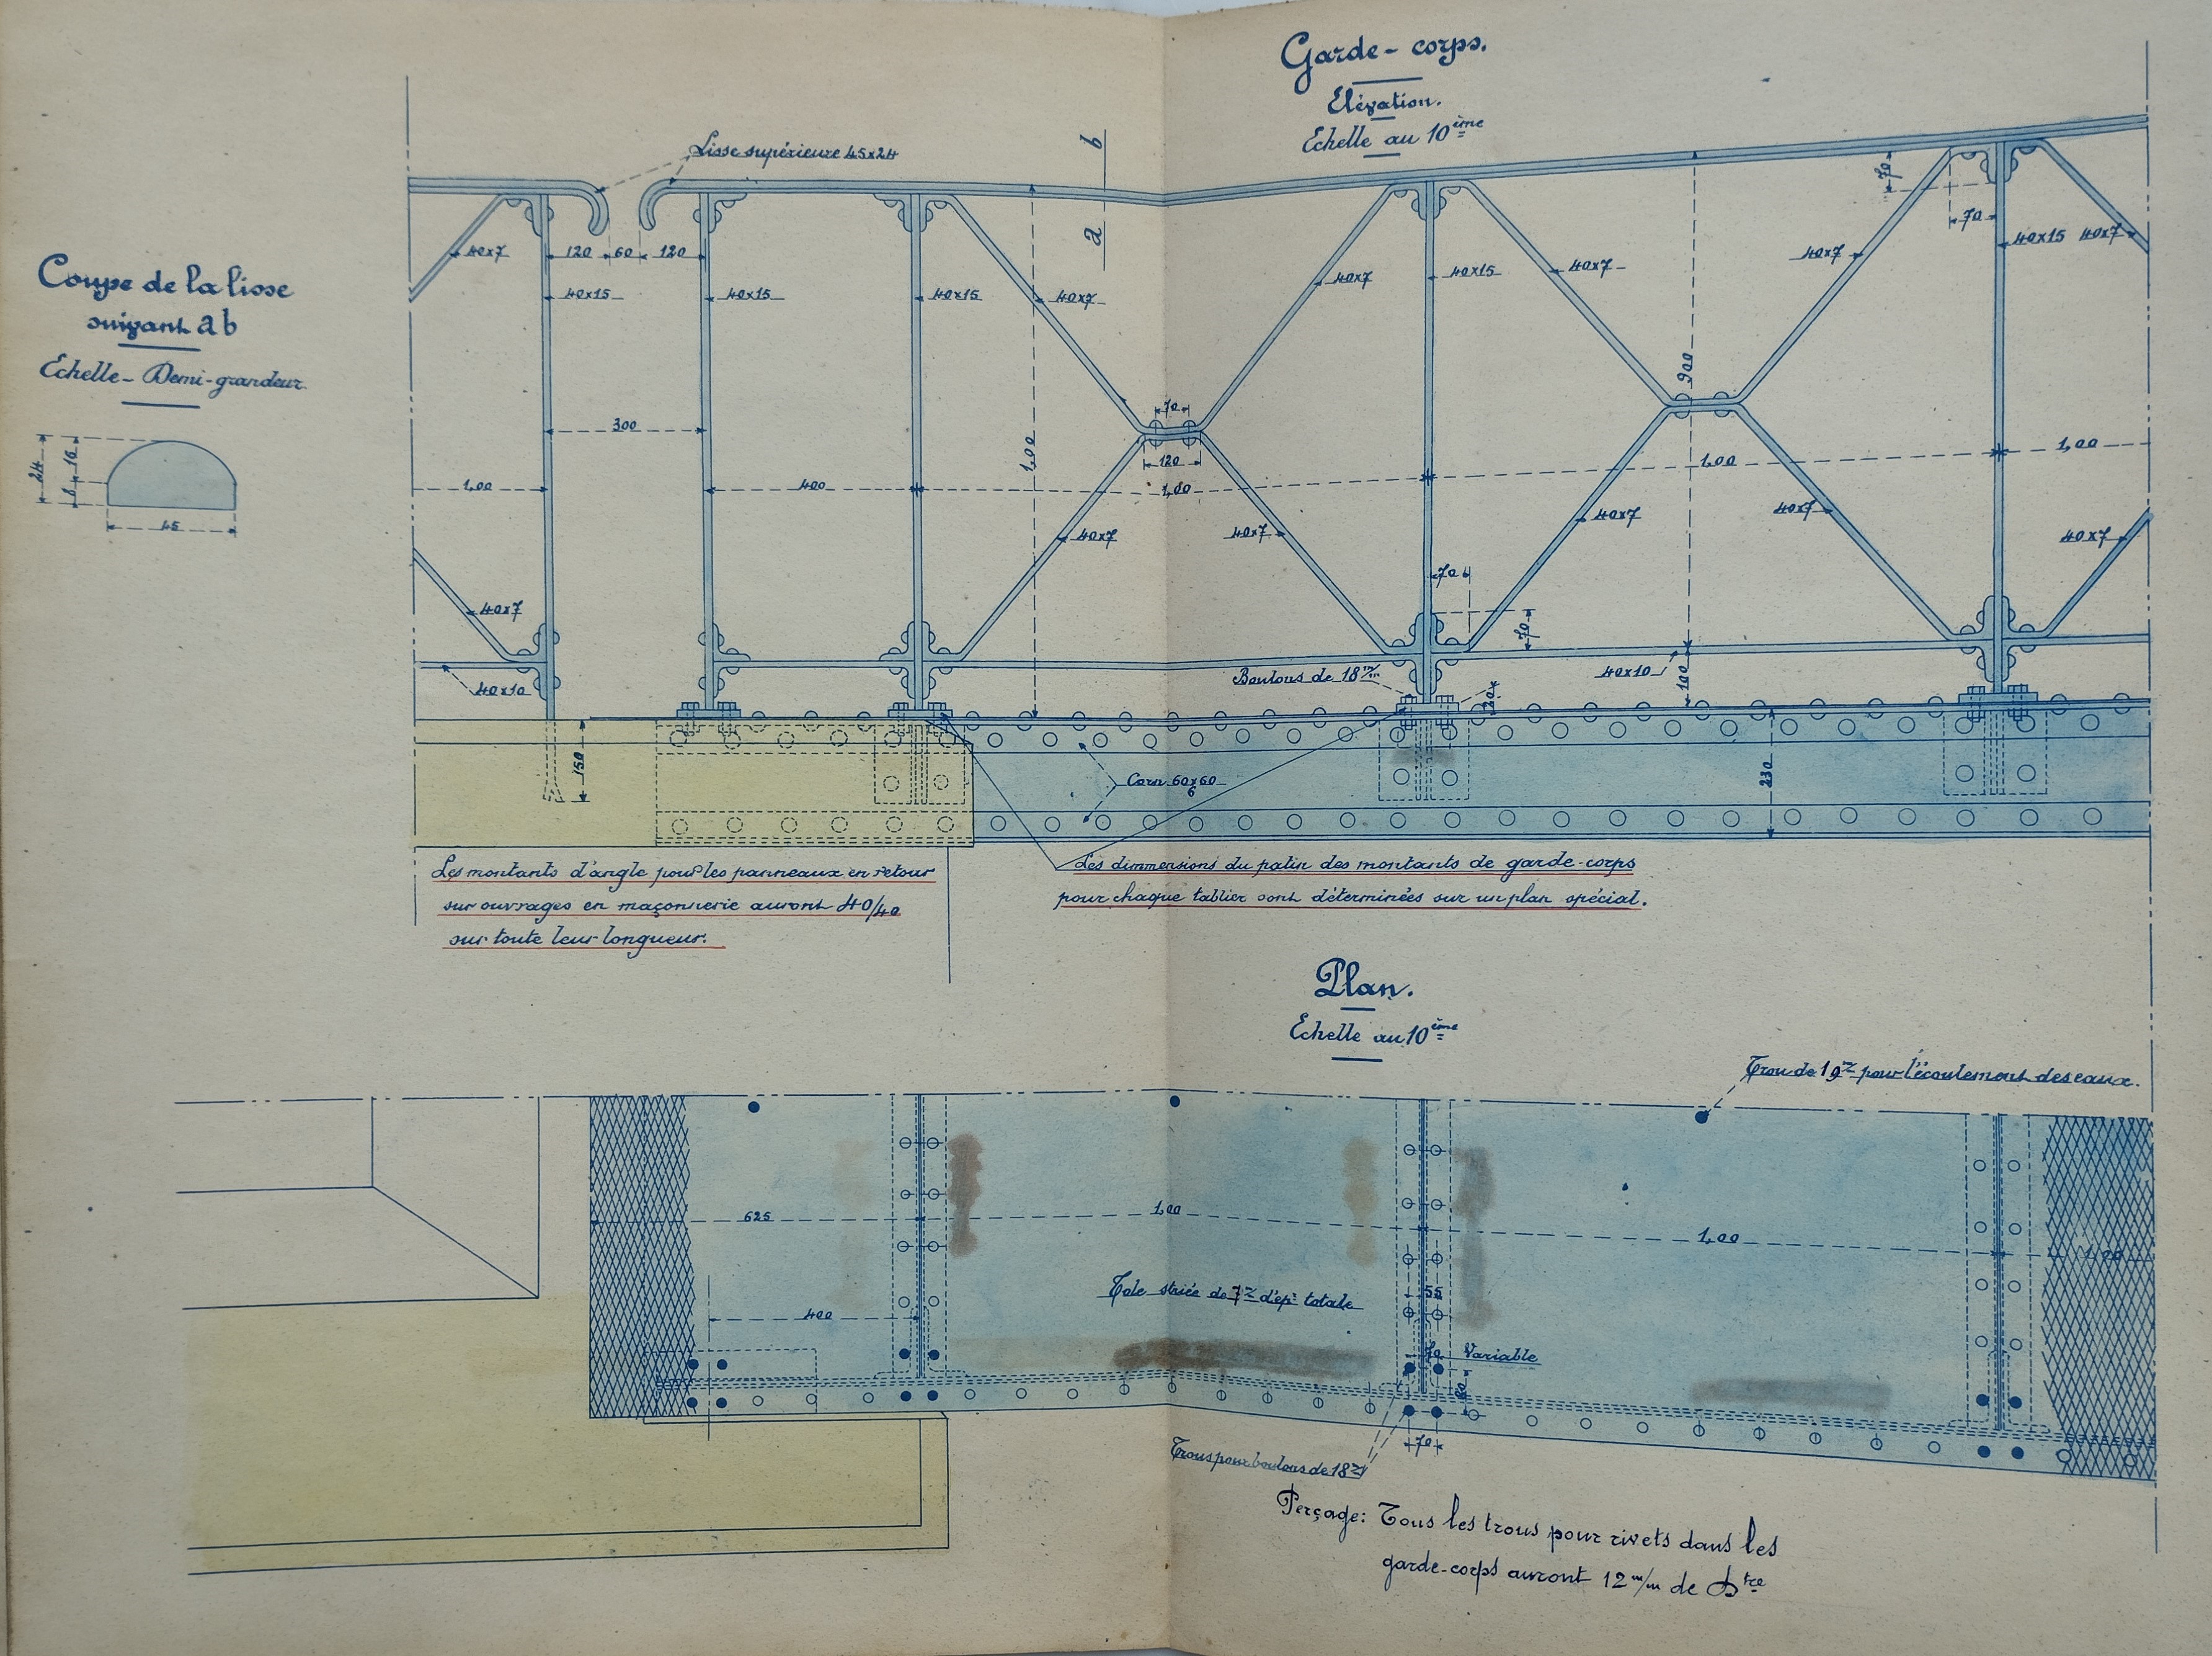 Garde-corps.
Elévation.
Echelle au 10ème
Lisse supérieure 45x24
b
a
Coupe de la lisse
suivant a b
Echelle - Demi-grandeur
24
16
8
45
40x7
120
60
120
40x15
40x15
40x15
40x7
40x7
40x15
40x7
40x7
70
70
40x15
40x7
300
1,00
400
1,00
1,00
70
120
900
1,00
1,00
40x7
40x7
40x7
40x7
40x7
40x7
40x10
70
70
Boulons de 18 m/m
20
40x10
100
150
Corn 60x60
6
230
Les montants d'angle pour les panneaux en retour
sur ouvrages en maçonnerie auront 40/40
sur toute leur longueur.
Les dimmensions du patin des montants de garde-corps
pour chaque tablier sont déterminées sur un plan spécial.
Plan.
Echelle au 10ème
Trou de 19 m/m pour l'écoulement des eaux.
625
1,00
1,00
1,00
Tole striée de 7 m/m d'épr totale
400
55
70
Variable
80
70
Trous pour boulons de 18 m/m
Perçage: Tous les trous pour rivets dans les
garde-corps auront 12 m/m de Dtre